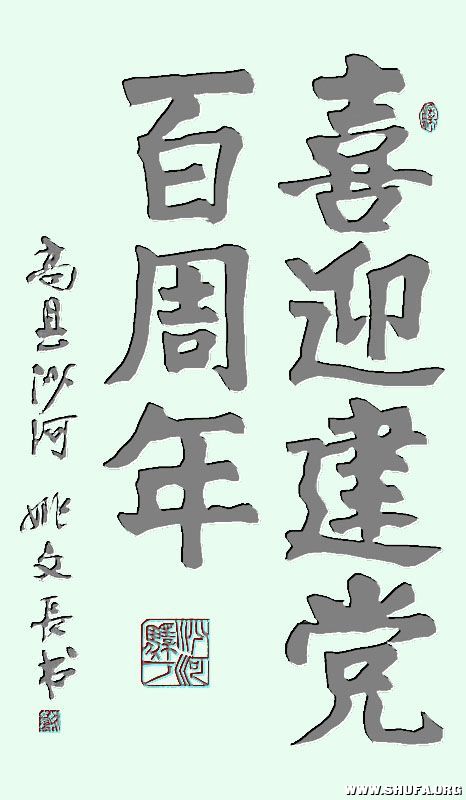 喜迎建党
百周年
高县沙河 姚文長书
WWW.SHUFA.ORG